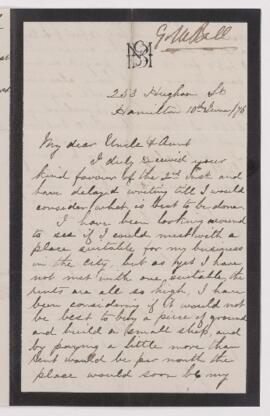 G. M. Bell
253 Hughson St
Hamilton 10th June/76
My dear Uncle & Aunt
I duly received your
kind favour of the 2nd Inst. and
have delayed writing till I would
consider what is best to be done.
I have been looking around
to see if I could meet with a
place suitable for my business
in the city, but as yet I have
not met with one suitable the
rents are all so high, I have
been considering if it would not
be best to buy a piece of ground
and build a small shop, and
by paying a little more than
rent would be per month the
place would soon be my